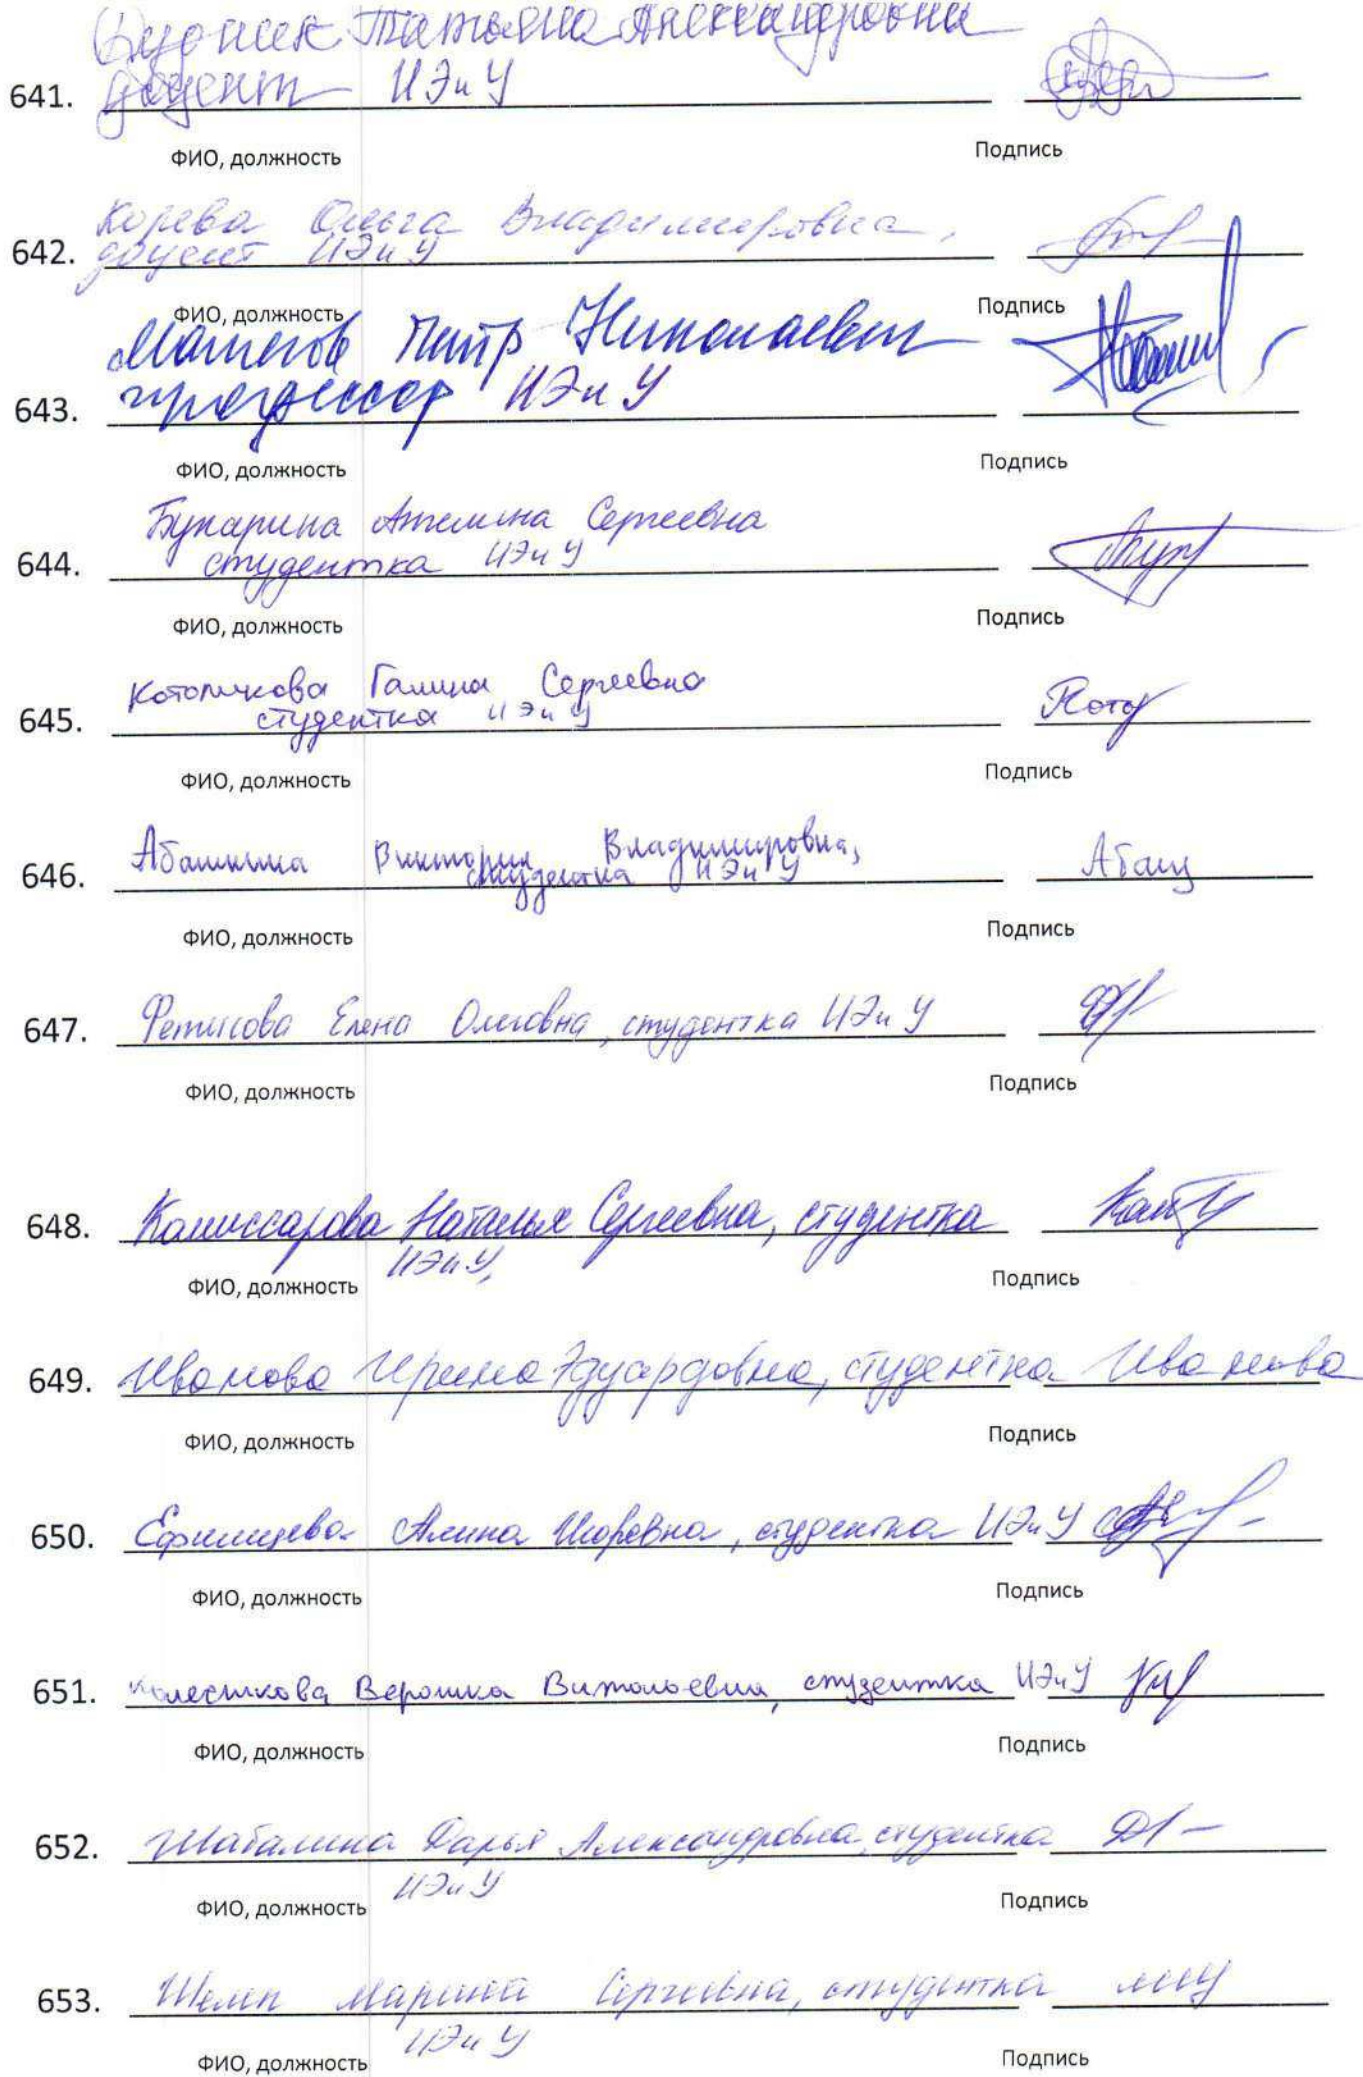 Татьяна Александровна
641. доцент ИЭиУ
ФИО, должность Подпись
Корева Ольга Владимировна,
642. доцент ИЭиУ
ФИО, должность Подпись
Петр Николаевич
643. профессор ИЭиУ
ФИО, должность Подпись
Букарина Ангелина Сергеевна
644. студентка ИЭиУ
ФИО, должность Подпись
Галина Сергеевна
645. студентка ИЭиУ
ФИО, должность Подпись
Абашкина Виктория Владимировна,
646. студентка ИЭиУ Абаш
ФИО, должность Подпись
647. Фетисова Елена Олеговна, студентка ИЭиУ
ФИО, должность Подпись
648. Комиссарова Наталья Сергеевна, студентка
ИЭиУ,
ФИО, должность Подпись
649. Иванова Ирина Эдуардовна, студентка Иванова
ФИО, должность Подпись
650. Алина Игоревна, студентка ИЭиУ
ФИО, должность Подпись
651. Колесникова Вероника Витальевна, студентка ИЭиУ
ФИО, должность Подпись
652. Шабалина Дарья Александровна, студентка
ИЭиУ
ФИО, должность Подпись
653. Марина Сергеевна, студентка
ИЭиУ
ФИО, должность Подпись